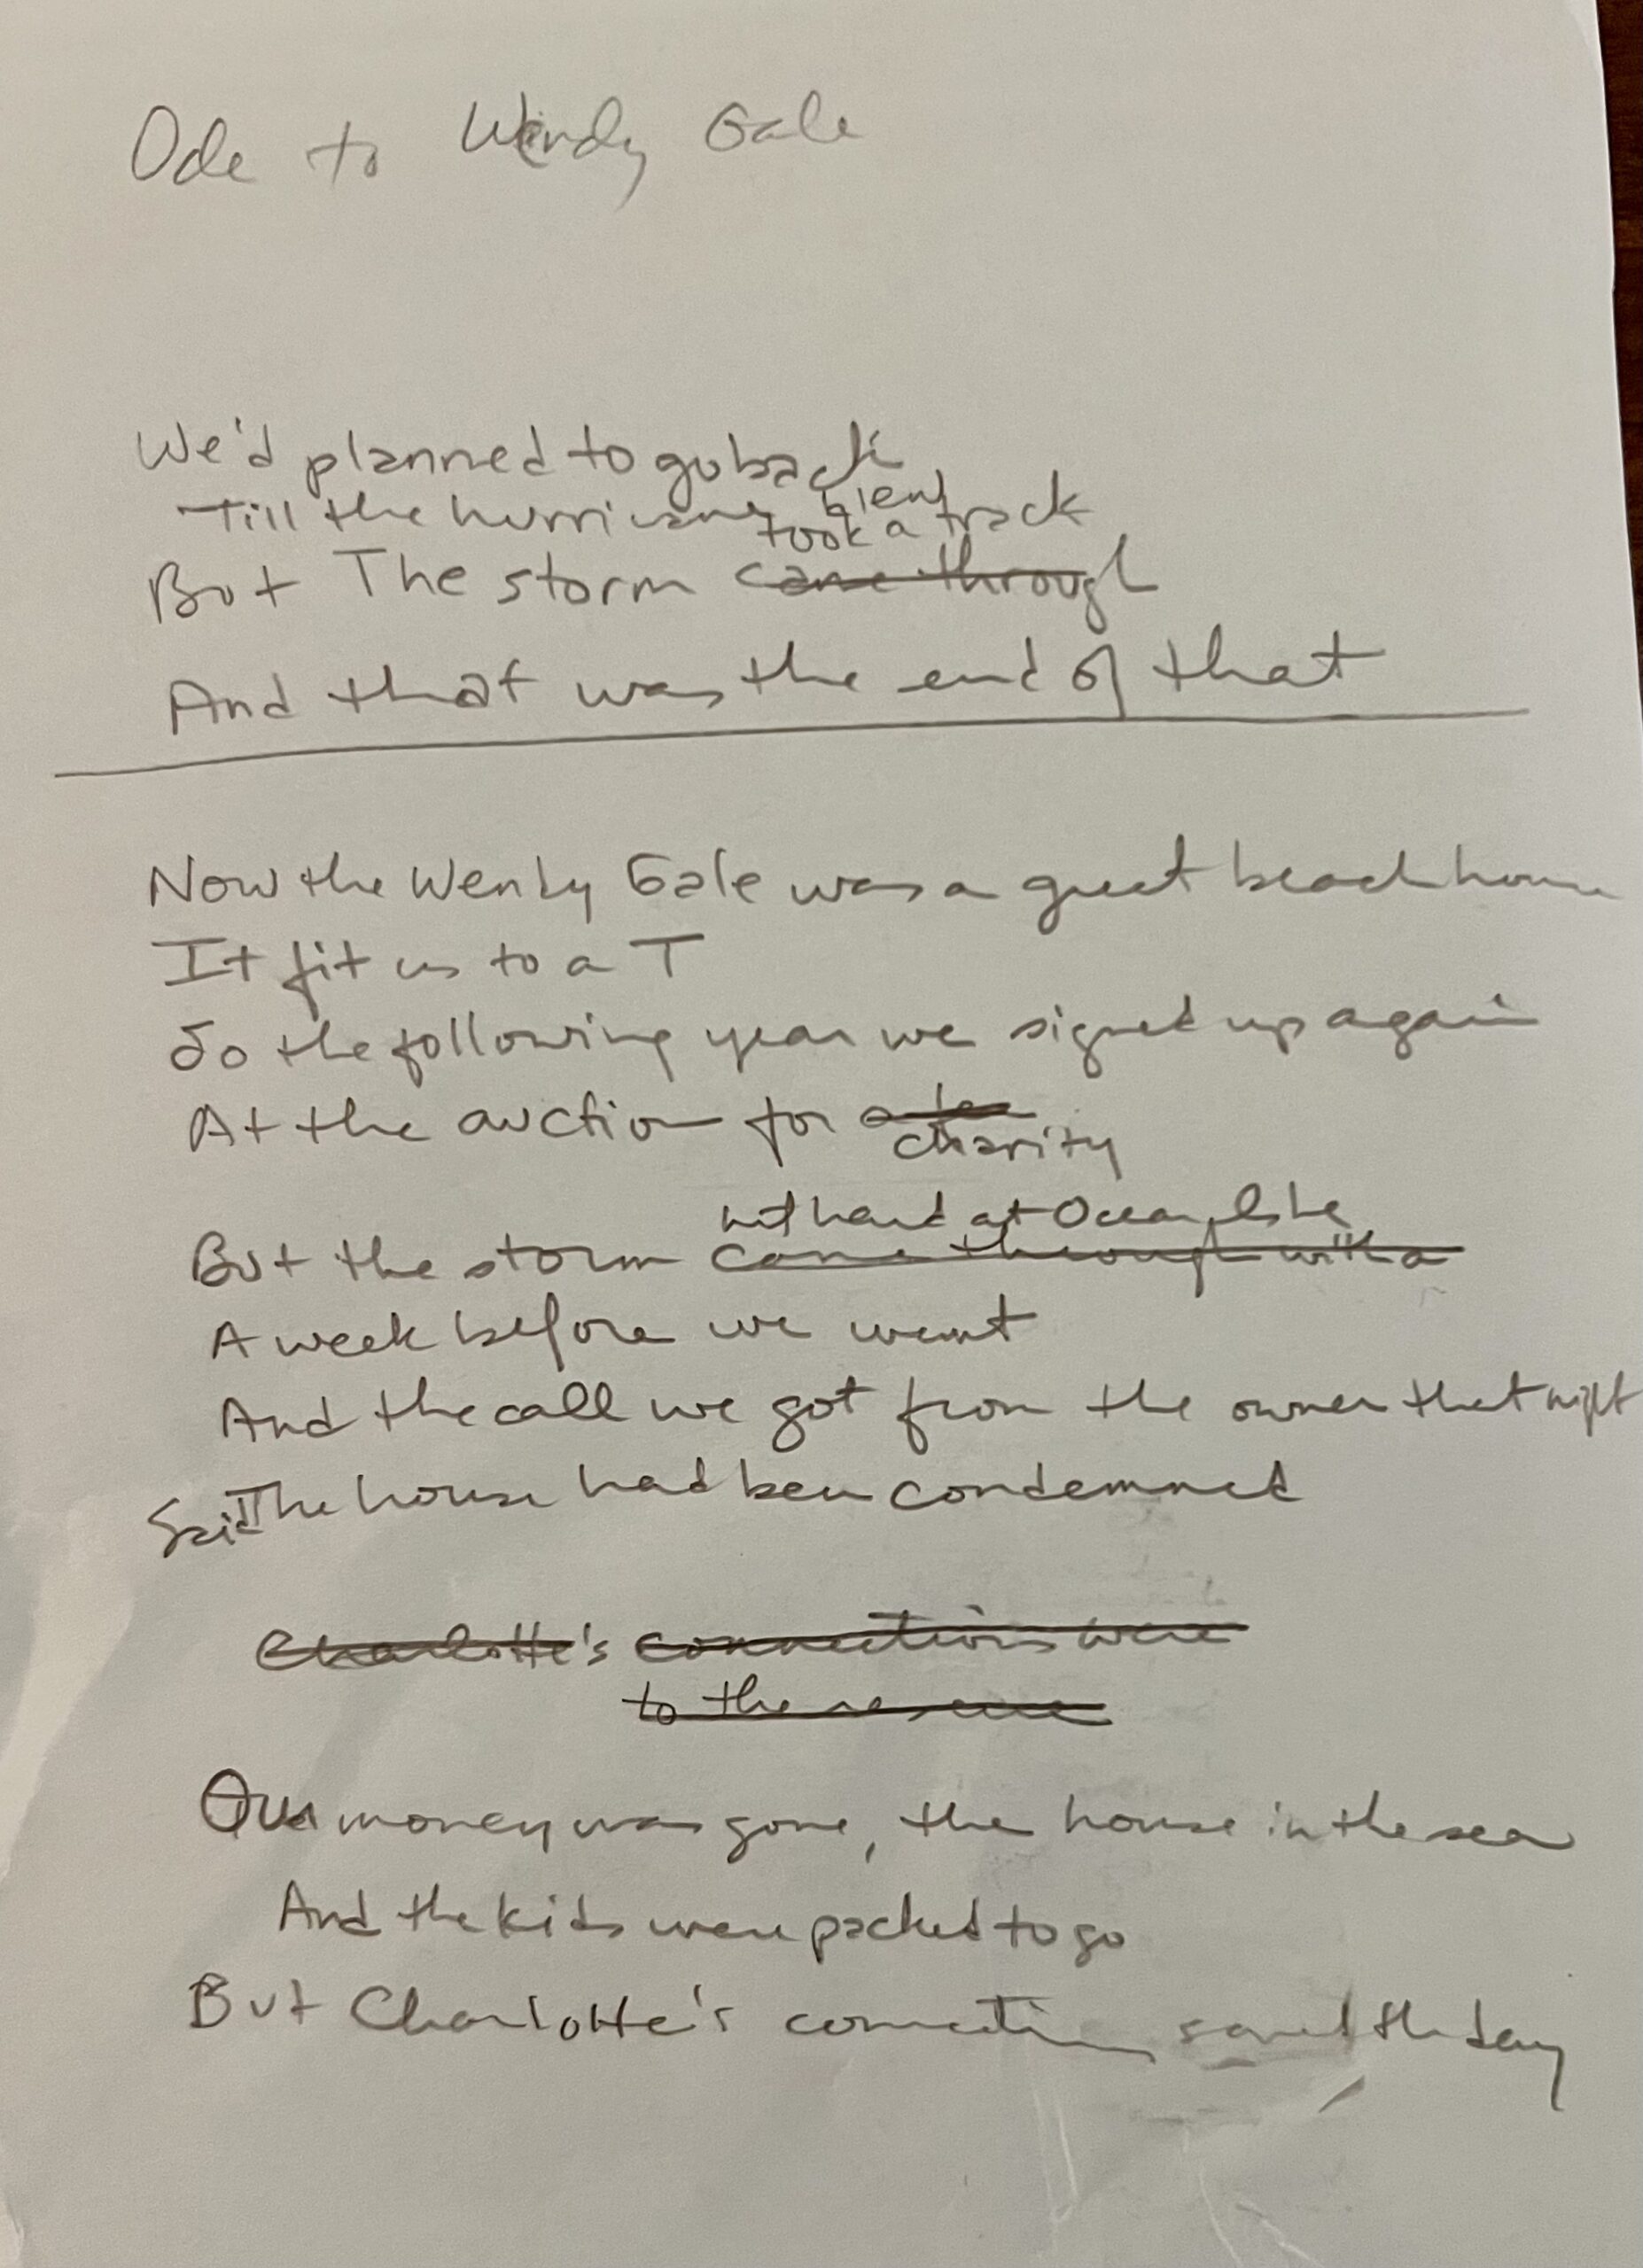 Ode to Wendy Gale
We'd planned to go back
Till the hurricane blew
took a track
But The storm came through
And that was the end of that
Now the Wendy Gale was a great beach house
It fit us to a T
So the following year we signed up again
At the auction for
charity
hit hard at Ocean Isle
But the storm came through with a
A week before we went
And the call we got from the owner that night
Said The house had been condemned
Charlotte's connections were
to the rescue
Our money was gone, the house in the sea
And the kids were packed to go
But Charlotte's connection saved the day